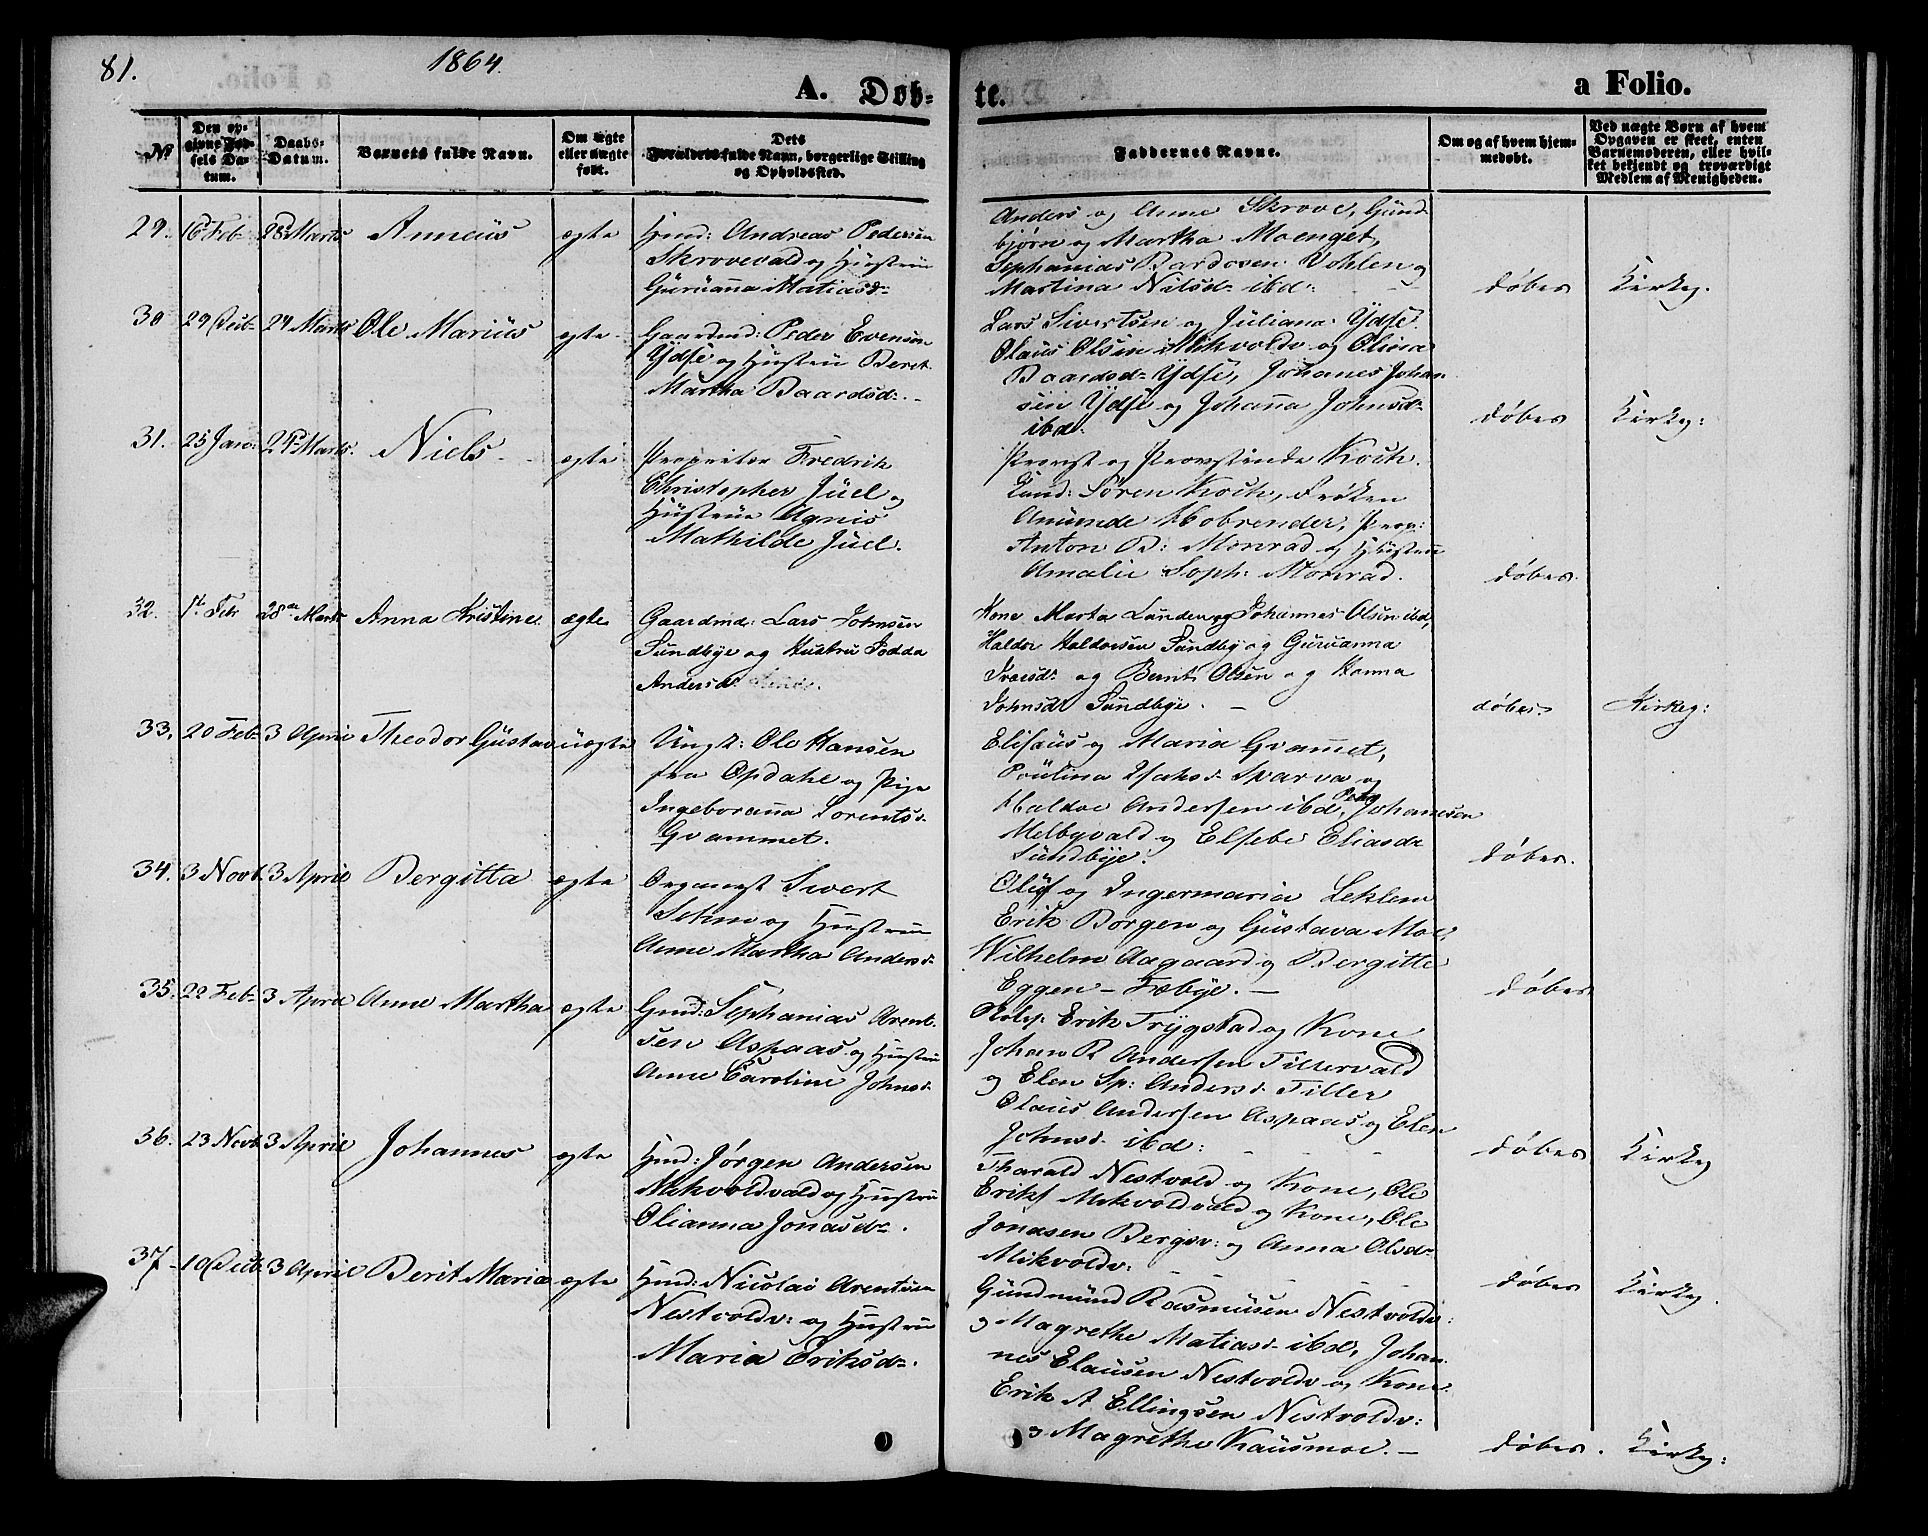 81.
1864.
A. Døb-
te.
a Folio.
No
Den op-
givne Fød-
sels Da-
tum.
Daabs-
Datum.
Barnets fulde Navn.
Om ægte
eller uægte
født.
Dets
Forældres fulde Navn, borgerlige Stilling
og Opholdssted.
Faddernes Navne.
Om og af hvem hjem-
medøbt.
Ved uægte Børn af hvem
Opgaven er skeet, enten
Barnemoderen, eller hvil-
ket bekjendt og troværdigt
Medlem af Menigheden.
29. 16 Feb 28 Marts Anneüs ægte
Hmd: Andreas Pedersen
Skrovevald og Hustrue
Guruanna Matiasd:
Anders og Anne Skrove, Gund-
bjørn og Martha Moenget,
Sephanias Bardosen Vohlen og
Martina Nilsd ibd:
døbes Kirkeg.
30 29 Decb 24 Marts Ole Mariüs ægte
Gaardmd: Peder Evensen
Ydse og Hustrue Beret
Martha Baardsd:
Lars Sivertsen og Juliana Ydse.
Olaüs Olsen Mikvoldv og Olina
Baardsd Ydse, Johanes Johan
sen Ydse og Johana Johnsd
ibd:
døbes Kirkeg:
31. 25 Janr: 24 Marts. Niels ægte
Proprietær Fredrik
Christopher Jüel og
Hustrue Agnis
Mathilde Jüel.
Provst og Provstinde Koch.
Kand: Søren Koch, Frøken
Prop:
Anton B: Monrad og Hustrue
Amalie Soph: Monrad.
døbes.
32. 1st Feb 28de Marts Anna Kristine. ægte
Gaardmd: Lars Johnsen
Sundbye og Hustru Jodda
Andersd.
Kone Marta Lunden og Johannes Olsen ibd,
Haldor Haldorsen Sundby og Guruanna
Ivarsd: og Bernt Olsen og Hanna
Johnsdt Sundbye. -
døbes. Kirkeg:
33. 20 Feb 3 April Theodor Güstav üægte
Ungk: Ole Hansen
fra Opdahl og Pige
Ingeborana Lorentsd.
Gvammet.
Elisaüs og Maria Gvamet,
Poülina Isaksd Sparva og
Haldor Andersen ibd, Peter Johanesen
Melbyvald og Elsebe Eliasdr
Sündbye.
døbes.
34. 3 Novb. 3 April Bergitta ægte
Organist Sivert
Selnes og Hustrue
Anne Martha Andersd
Oluf og Ingermaria Leklem
Erik Borgen og Güstava Moe,
Wilhelm Aagaard og Bergitte
Eggen - Fæbye. -
døbes
35. 22 Feb 3 April Anne Martha ægte
Gmd: Sephanias Arent-
sen Aspaas og Hustrue
Anne Caroline Johnsd
Erik Trÿgstad og Kone
Johan P Andersen Tillervald
og Elen Sp: Andersd Tiller
Olaüs Andersen Aspaas og Elen
Johnsd ibd:
døbes Kirkeg
36. 23 Novb 3 April Johannes ægte
Hmd: Jørgen Andersen
Mikvoldvald og Hustrue
Olianna Jonasdr.
Tharald Nestvold og Kone, Ole
Eriks Mikvoldvald og Kone, Ole
Jonasen Bergsv: og Anna Olsdr
Mikvoldv.
døbes Kirkeg.
37 - 10 Decb. 3 April Berit Maria ægte
Hmd: Nicolai Arentsen
Nestvoldv: og Hustrue
Maria Eriksdr.
Gündmünd Rasmüsen Nestvoldv:
og Magrethe Matiasd ibd, Johan-
nes Elausen Nestvoldv og Kone
Erik A Ellingsen Nestvoldv:
og Magrethe Kausmoe. -
døbes. Kirkeg: